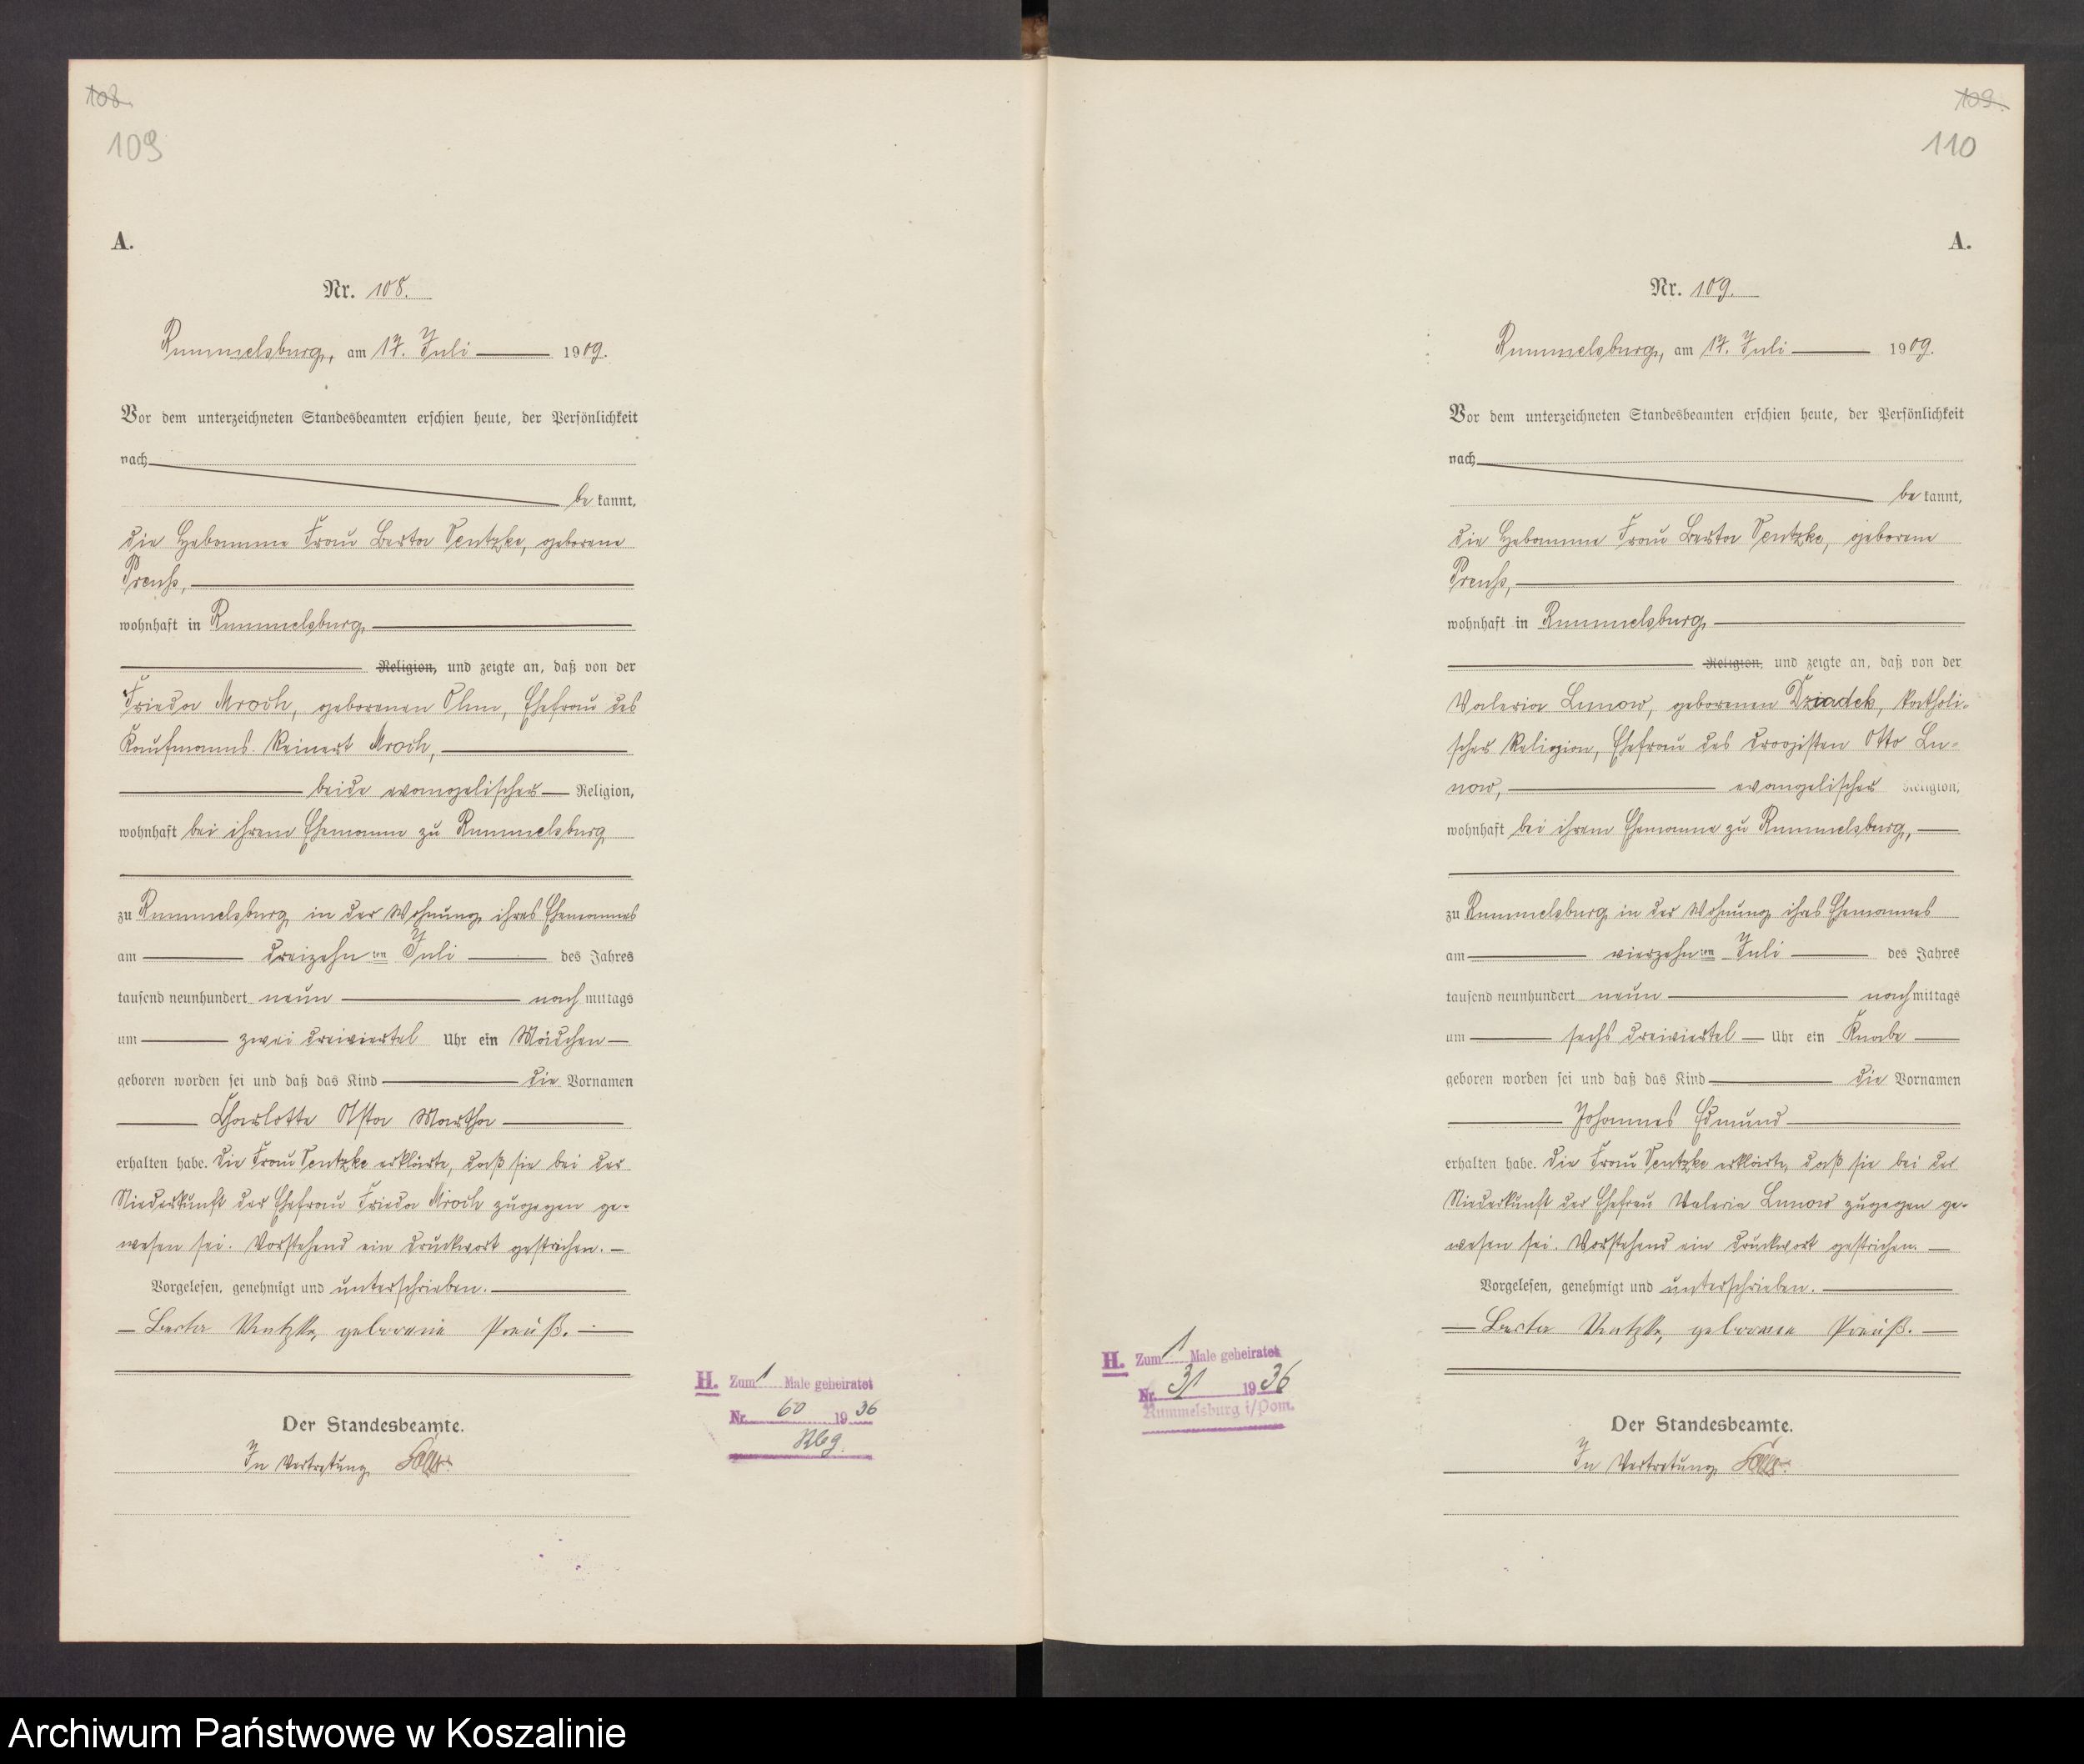 108.
109
A.
Nr. 108.
Rummelsburg, am 17. Juli 1909.
Vor dem unterzeichneten Standesbeamten erschien heute, der Persönlichkeit
nach
be kannt,
die Hebamme Frau Berta Ventzke, geborene
Preuß,
wohnhaft in Rummelsburg,
Religion, und zeigte an, daß von der
Frieda Mroch, geborenen Ohm, Ehefrau des
Kaufmanns Reinert Mroch,
beide evangelischer Religion,
wohnhaft bei ihrem Ehemann zu Rummelsburg
zu Rummelsburg in der Wohnung ihres Ehemannes
am dreizehn ten Juli des Jahres
tausend neunhundert neun nach mittags
um zwei dreiviertel Uhr ein Mädchen
geboren worden sei und daß das Kind die Vornamen
Charlotte Asta Martha
erhalten habe. Die Frau Ventzke erklärte, daß sie bei der
Niederkunft der Ehefrau Frieda Mroch zugegen ge-
wesen sei. Vorstehend ein Druckwort gestrichen.
Vorgelesen, genehmigt und unterschrieben.
Berta Ventzke, geborene Preuß.
Der Standesbeamte.
In Vertretung
H. Zum 1 Male geheiratet
Nr. 60 1936
Rbg.
109.
110
A.
Nr. 109.
Rummelsburg, am 17. Juli 1909.
Vor dem unterzeichneten Standesbeamten erschien heute, der Persönlichkeit
nach
be kannt,
die Hebamme Frau Berta Ventzke, geborene
Preuß,
wohnhaft in Rummelsburg,
Religion, und zeigte an, daß von der
Valeria Lunow, geborenen Dziadek, katholi-
scher Religion, Ehefrau des Drogisten Otto Lu-
now, evangelischer Religion,
wohnhaft bei ihrem Ehemanne zu Rummelsburg,
zu Rummelsburg in der Wohnung ihres Ehemannes
am vierzehn ten Juli des Jahres
tausend neunhundert neun nach mittags
um sechs dreiviertel Uhr ein Knabe
geboren worden sei und daß das Kind die Vornamen
Johannes Edmund
erhalten habe. Die Frau Ventzke erklärte, daß sie bei der
Niederkunft der Ehefrau Valeria Lunow zugegen ge-
wesen sei. Vorstehend ein Druckwort gestrichen.
Vorgelesen, genehmigt und unterschrieben.
Berta Ventzke, geborene Preuß.
Der Standesbeamte.
In Vertretung
H. Zum 1 Male geheiratet
Nr. 31 1936
Rummelsburg i/Pom.
Archiwum Państwowe w Koszalinie